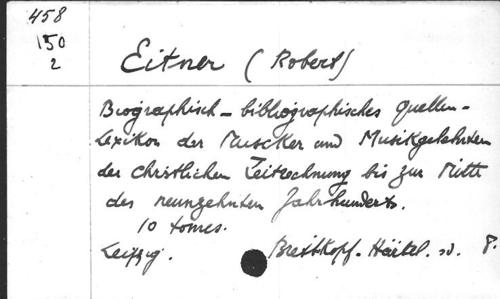 458
150
2
Eitner (Robert)
Biographisch - bibliographisches Quellen-
Lexikon der Musiker und Musikgelehrten
der christlichen Zeitrechnung bis zur Mitte
des neunzehnten Jahrhunderts.
10 tomes.
Leipzig. Breitkopf. Härtel. sd. 8.